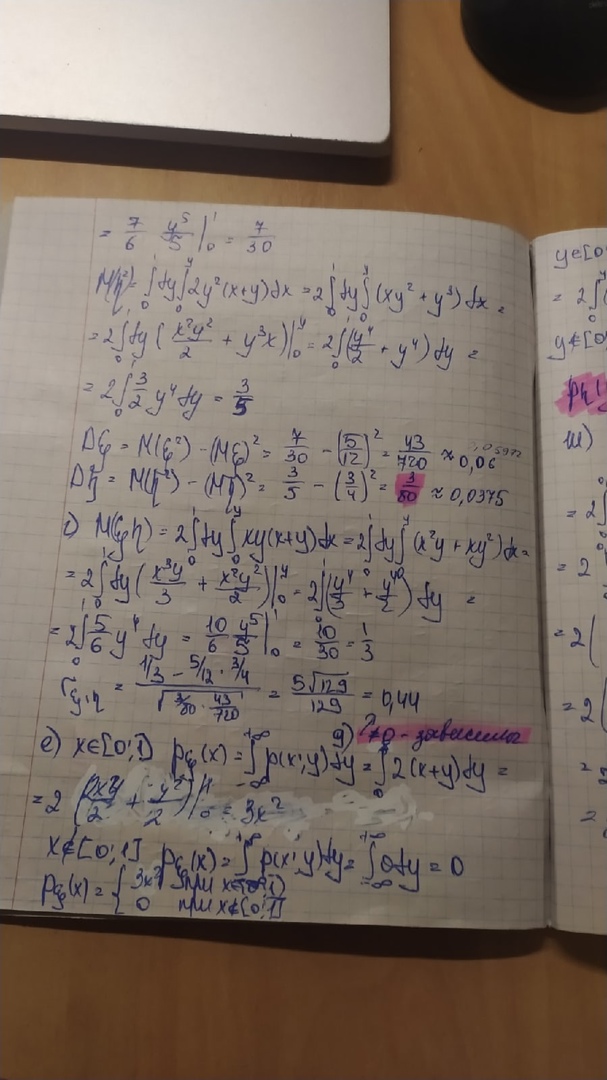 = 7/6 y⁵/5 |₀¹ = 7/30
M(η²) = ∫₀¹dy∫₀ʸ2y²(x+y)dx = 2∫₀¹dy∫₀ʸ(xy²+y³)dx =
= 2∫₀¹dy(x²y²/2 + y³x)|₀ʸ = 2∫₀¹(y⁴/2 + y⁴)dy =
= 2∫₀¹ 3/2 y⁴dy = 3/5
Dξ = M(ξ²) - (Mξ)² = 7/30 - (5/12)² = 43/720 ≈ 0,06
Dη = M(η²) - (Mη)² = 3/5 - (3/4)² = 3/80 ≈ 0,0375
M(ξη) = 2∫₀¹dy∫₀ʸxy(x+y)dx = 2∫₀¹dy∫₀ʸ(x²y + xy²)dx =
= 2∫₀¹dy(x³y/3 + x²y²/2)|₀ʸ = 2∫₀¹(y⁴/3 + y⁴/2)dy =
= 2∫₀¹ 5/6 y⁴dy = 10/6 y⁵/5 |₀¹ = 10/30 = 1/3
r ξ,η = (1/3 - 5/12 · 3/4)/√(3/80 · 43/720) = 5√129/129 = 0,44
g) r≠0 - зависимы
e) x∈[0;1] pξ(x) = ∫₋∞⁺∞p(x;y)dy = ∫2(x+y)dy =
= 3x²
x∉[0;1] pξ(x) = ∫₋∞⁺∞p(x;y)dy = ∫₋∞⁺∞0dy = 0
pξ(x) = { 3x² при
0 при x∉[0;1]
y∈[0
= 2∫₀
y∉[0
ш)
= 2∫
= 2
= 2(
= 2(
=
=